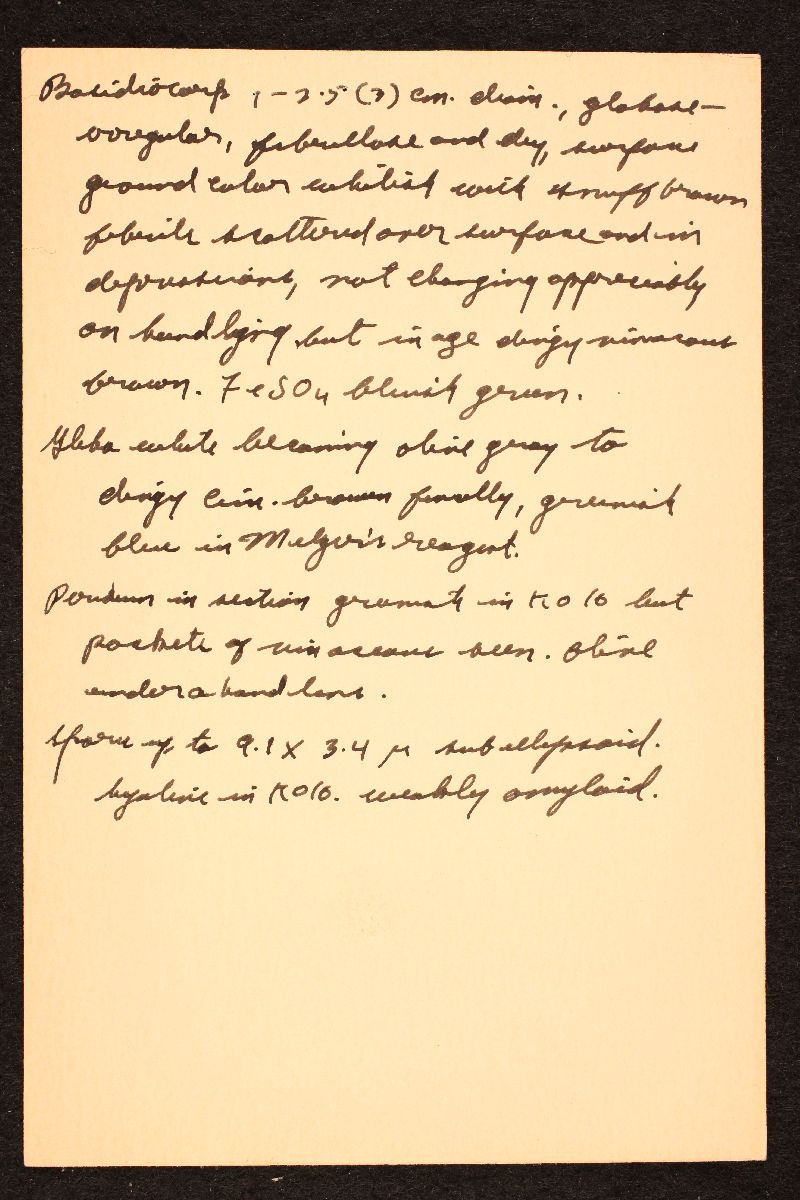 Basidiocarp 1-2.5 (3) cm. diam., globose-
irregular, fibrillose and dry, surface
ground color whitish with snuff brown
fibrils scattered over surface and in
depressions, not changing appreciably
on handlying but in age dingy vinaceous
brown. FeSO4 bluish green.
Gleba white becoming olive gray to
dingy cin. brown finally, greenish
blue in Melzer's reagent.
Peridium in section greenish in KOH but
pockets of vinaceous seen. Olive
under a hand lens.
Spores up to 9.1 x 3.4 µ subellipsoid.
hyaline in KOH. weakly amyloid.